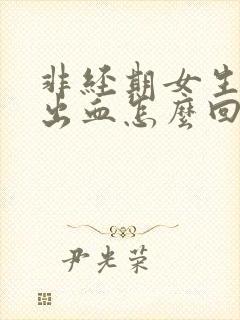 非经期女生
出血怎麽回
尹光荣